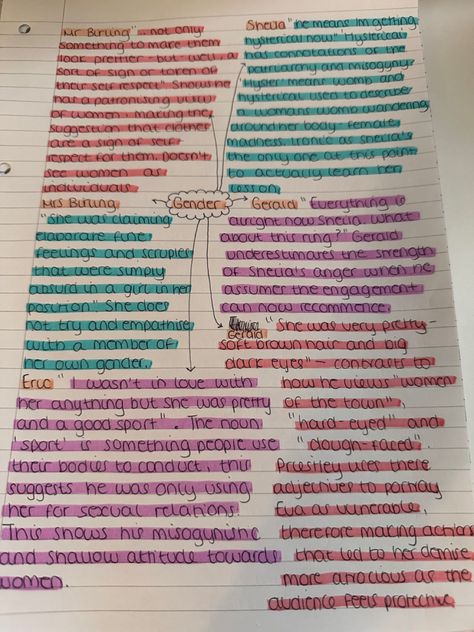 Mr Birling "- not only
something to make them
look prettier - but well a
sort of sign or token of
their self respect" Shows he
has a patronising view
of women making the
suggestion that clothes
are a sign of self
respect for them. Doesn't
see women as
individuals.
Sheila "he means I'm getting
hysterical now" 'Hysterical'
has connotations of the
patriarchy and misogyny.
'Hyster' means womb and
hysterical used to describe
a womans womb wandering
around her body. female
madness. Ironic as sheila's
the only one at this point
to actually learn her
lesson.
Gender
Mrs Birling
"She was claiming
elaborate fine
feelings and scruples
that were simply
absurd in a girl in her
position". She does
not try and empathise
with a member of
her own gender.
Gerald "Everything is
alright now Sheila. What
about this ring?" Gerald
underestimates the strength
of Sheila's anger when he
assumes the engagement
can now recommence.
Gerald "She was very pretty -
soft brown hair and big
dark eyes" - contrasts to
how he views "women
of the town",
"hard-eyed" and
"dough-faced".
Priestley uses these
adjectives to portray
Eva as vunerable,
therefore making actions
that led to her demise
more atrocious as the
audience feels protective
Eric "I wasn't in love with
her anything but she was pretty
and a good sport". The noun
'sport' is something people use
their bodies to conduct, this
suggests he was only using
her for sexual relations.
This shows his misogynistic
and shallow attitude towards
women.